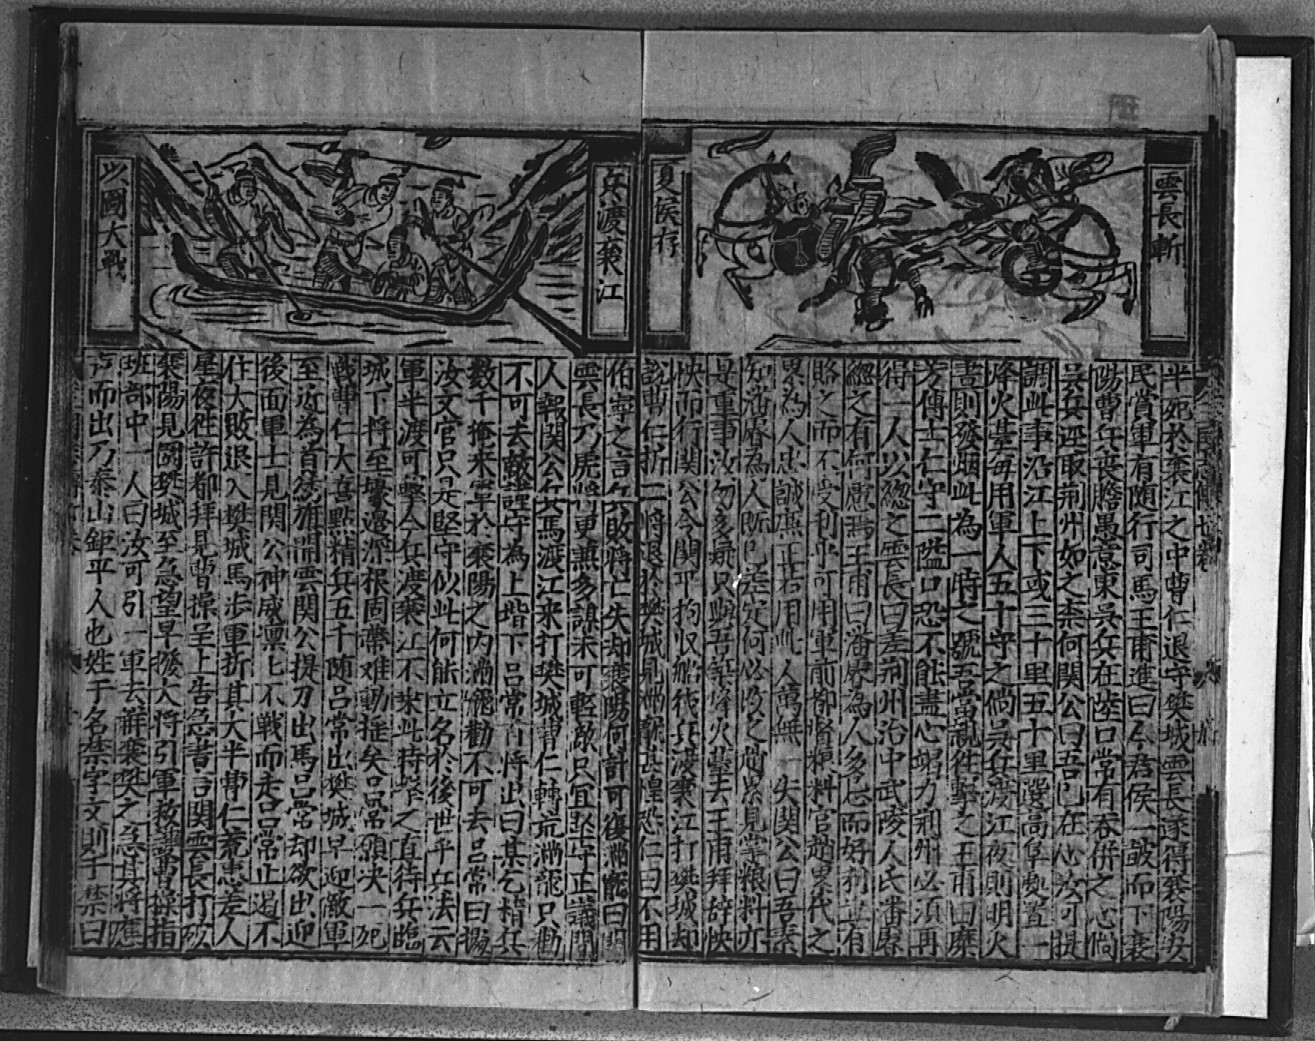 雲長斬
夏侯存
兵渡襄江
半死於襄江之中曹仁退守樊城雲長遂得襄陽安
民賞軍有随行司馬王甫進曰今君侯一皷而下襄
陽曹兵喪膽愚意東吳兵在陸口常有吞併之心倘
吴兵逕取荆州如之柰何関公曰吾已在心汝可提
調此事沿江上下或三十里五十里選高阜處置一
烽火臺每用軍人五十守之倘吴兵渡江夜則明火
晝則發烟此為一時之號吾當親往擊之王甫曰糜
芳傅士仁守二隘口恐不能盡心竭力荆州必須再
得一人以緫之雲長曰差荆州治中武陵人氏潘濬
緫之有何慮焉王甫曰潘濬為人多忌而好利
之而不受利也可用軍前都督粮料官趙累代之
累為人忠誠亷正若用此人萬無一失関公曰吾素
知潘濬為人既已差定何必改之趙累見掌粮料亦
是重事汝勿多疑只與吾築烽火臺去王甫拜辞怏
怏而行関公令関平拘収船筏兵渡襄江打樊城却
說曹仁折二將退於樊城見滿寵甚惶恐仁曰不用
伯寧之言兵敗將亡失却襄陽何計可復滿寵曰関
雲長乃虎將更兼多謀未可輕敵只宜堅守正議間
人報関公兵馬渡江来打樊城曹仁轉荒滿寵只勸
不可去敵謹守為上堦下吕常肯将出曰某乞精兵
數千掩来軍於襄陽之内滿寵勸不可去吕常曰據
汝文官只是堅守似此何能立名於後世乎兵法云
軍半渡可擊今兵渡襄江不来此時擊之直待兵臨
城下將至壕邊深根固蒂难動揺矣吕常願决一死
戰曹仁大喜點精兵五千随吕常出樊城早迎敵軍
至近為首綉旗開雲関公提刀出馬吕常却欲出迎
後面軍士見関公神威凛匕不戰而走吕常止遏不
住大敗退入樊城馬步軍折其大半曹仁差人
星夜往許都拜見曹操呈上告急書言関雲長打破
襄陽見圍樊城至急望早撥大将引軍救護曹操指
班部中一人曰汝可引一軍去觧襄樊之急其將應
声而出乃泰山鉅平人也姓于名禁字文則于禁曰